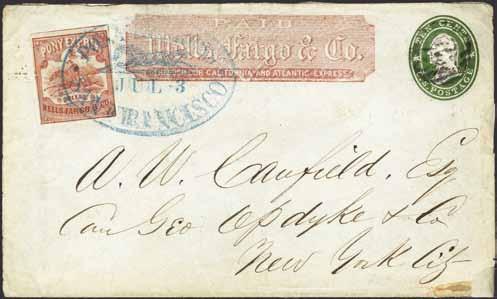 PAID
Wells, Fargo & Co.
OVER OUR CALIFORNIA AND ATLANTIC EXPRESS
TEN CENTS
U.S. POSTAGE
PONY EXPRESS
WELLS, FARGO & CO.
JUL 3
FRANCISCO
A. W. Canfield, Esq
Care Geo Opdyke & Co
New York City